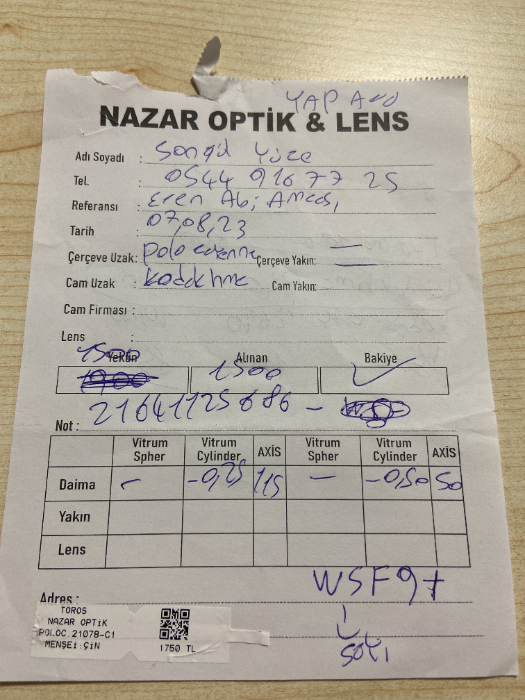 YAP
NAZAR OPTİK & LENS
Adı Soyadı : Songül Yüce
Tel. : 0544 916 77 25
Referansı : Eren Abi Amcası
Tarih : 07,08,23
Çerçeve Uzak: polo Çerçeve Yakın: —
Cam Uzak : Cam Yakın:
Cam Firması :
Lens :
1500 Yekün Alınan Bakiye
1900 1500 ✓
21641125686 –
Not :
Vitrum Spher Vitrum Cylinder AXİS Vitrum Spher Vitrum Cylinder AXİS
Daima – -0,25 115 — -0,50 50
Yakın
Lens
WSF97
Adres :
TOROS
NAZAR OPTİK
POLOC.21078-C1
MENŞEİ:ÇİN 1750 TL